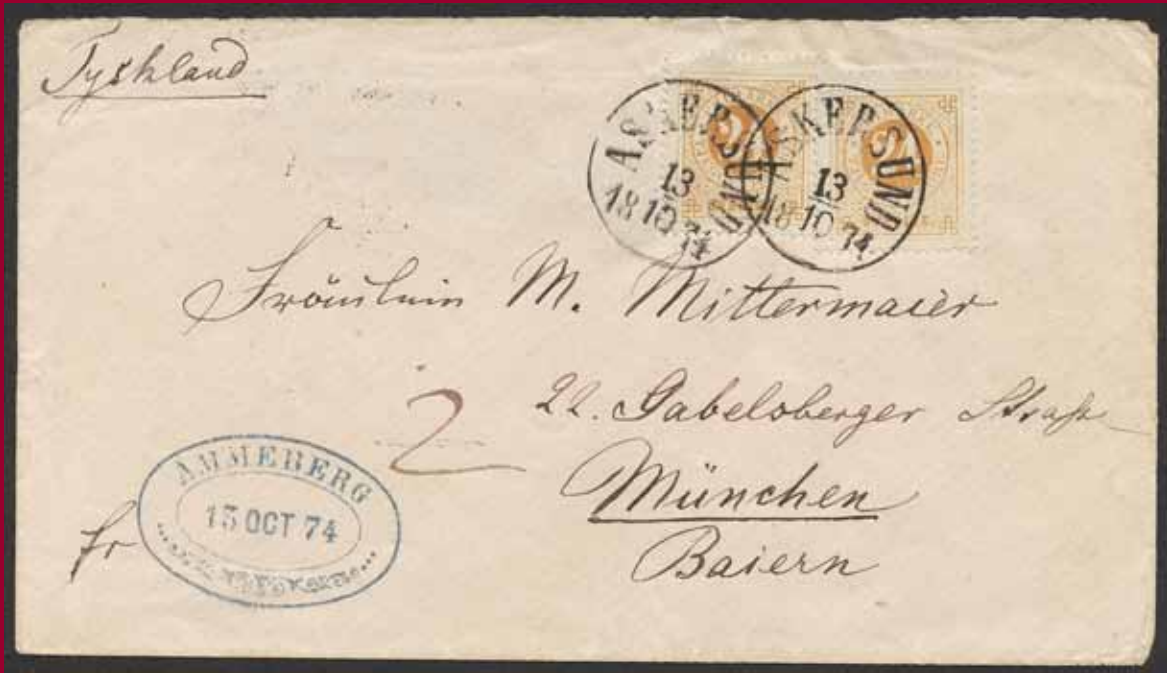 Tyskland
ASKERSUND
13
18 10 74
ASKERSUND
13
18 10 74
Fräulein M. Mittermaier
22. Gabelsberger Straße
2
München
Baiern
AMMEBERG
15 OCT 74
fr